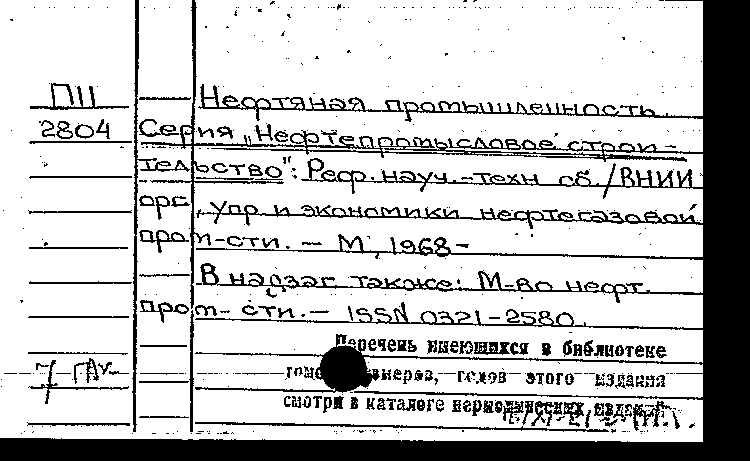 П11 Нефтяная промышленность.
2804 Серия „Нефтепромысловое строи-
тельство": Реф. науч.-техн сб. / ВНИИ
орг., упр. и экономики нефтегазовой
пром-сти. — М., 1968-
В надзаг также: М-во нефт.
пром-сти. — ISSN 0321-2580.
Перечень имеющихся в библиотеке
номеров, годов этого издания
смотри в каталоге периодических